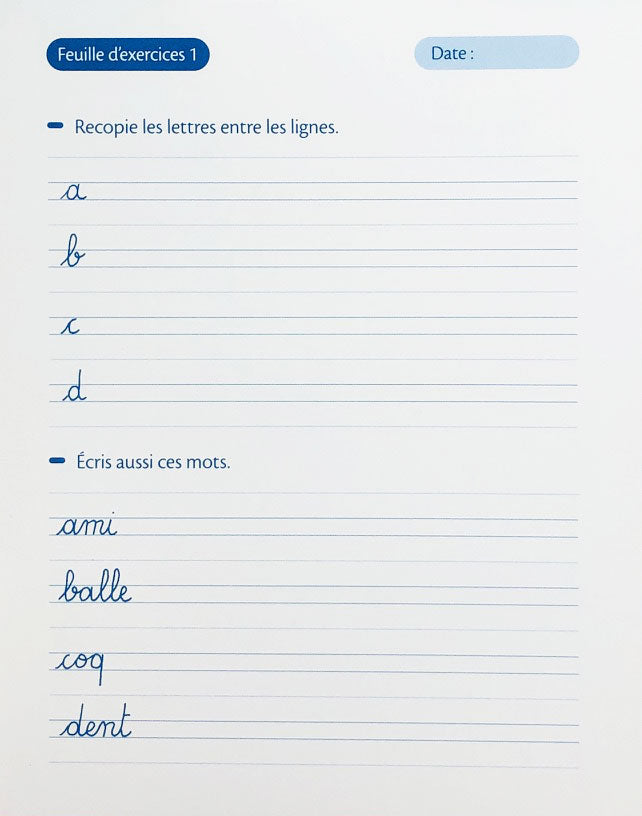 Feuille d'exercices 1
Date :
Recopie les lettres entre les lignes.
a
b
c
d
Écris aussi ces mots.
ami
balle
coq
dent